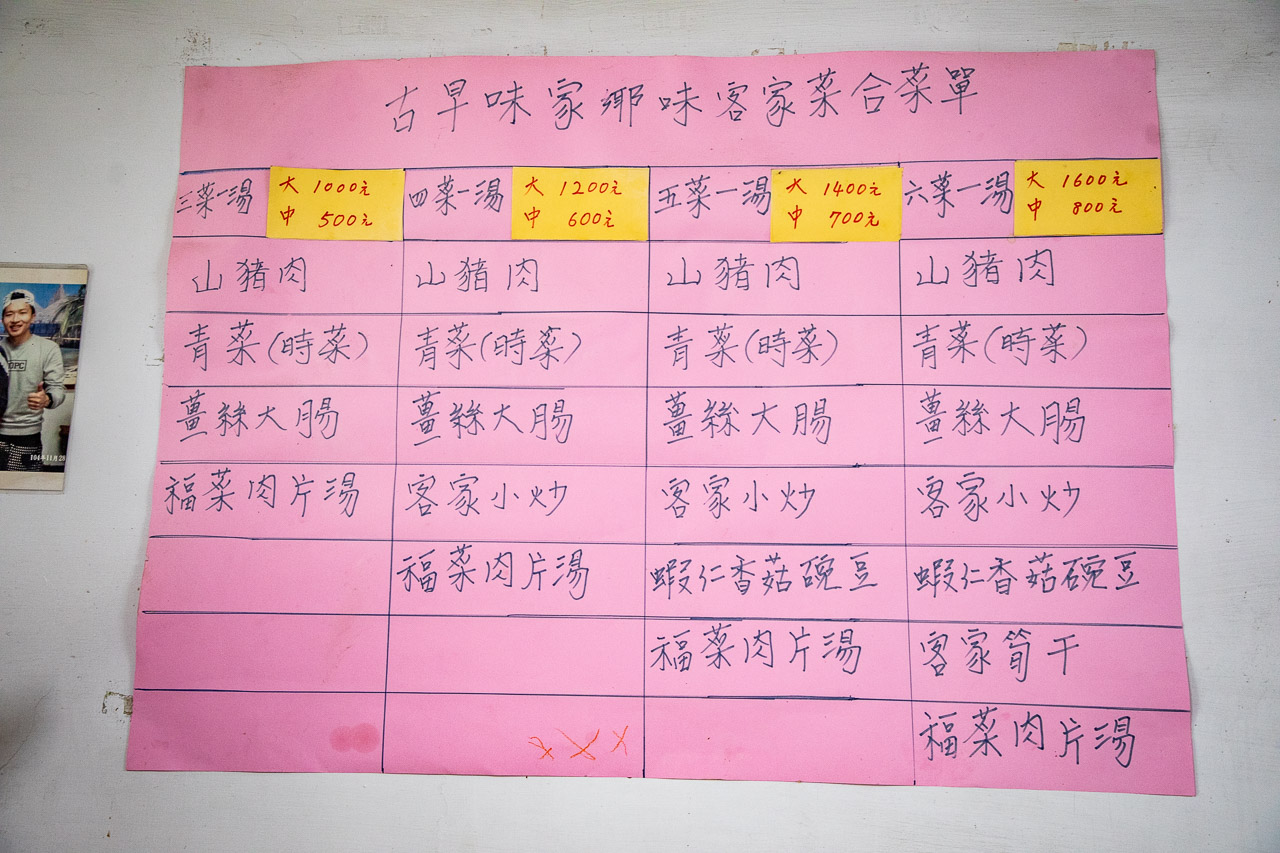 古早味家鄉味客家菜合菜單
三菜一湯 大 1000元 中 500元
四菜一湯 大 1200元 中 600元
五菜一湯 大 1400元 中 700元
六菜一湯 大 1600元 中 800元
山豬肉 山豬肉 山豬肉 山豬肉
青菜(時菜) 青菜(時菜) 青菜(時菜) 青菜(時菜)
薑絲大腸 薑絲大腸 薑絲大腸 薑絲大腸
福菜肉片湯 客家小炒 客家小炒 客家小炒
福菜肉片湯 蝦仁香菇碗豆 蝦仁香菇碗豆
福菜肉片湯 客家筍干
福菜肉片湯
XXX
104年11月28